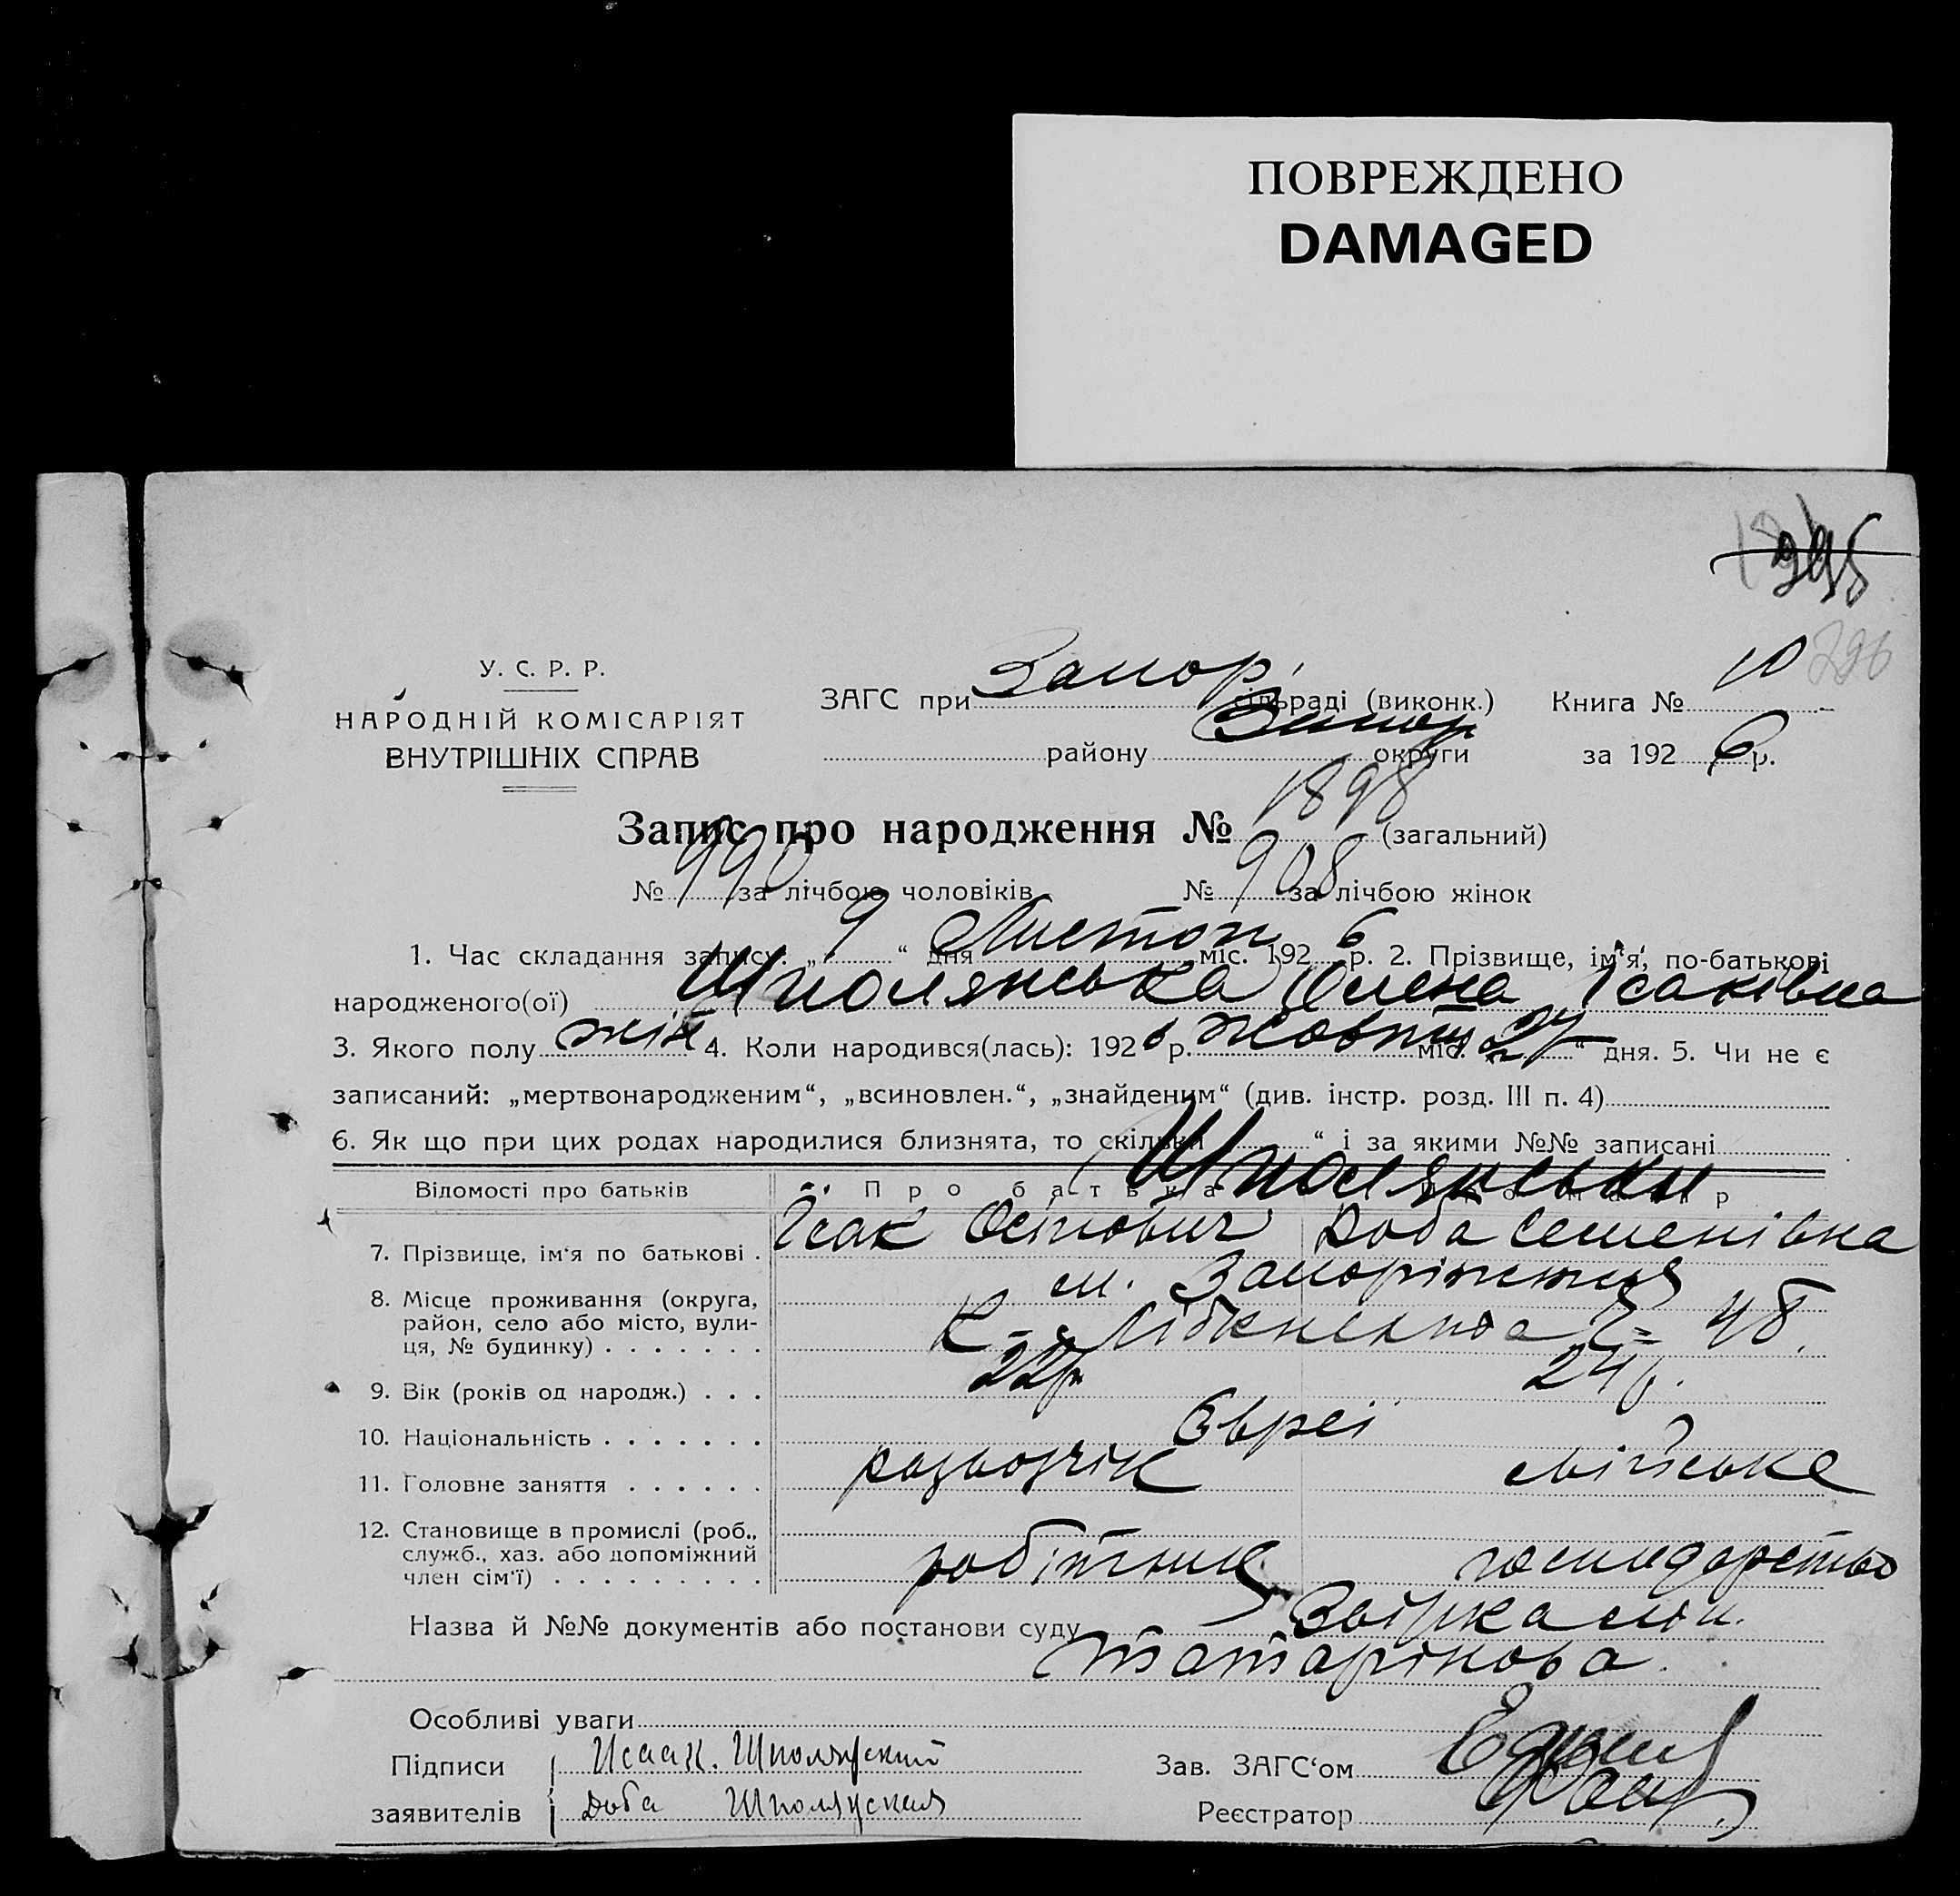 ПОВРЕЖДЕНО
DAMAGED
295
296
У. С. Р. Р.
НАРОДНІЙ КОМІСАРІЯТ
ВНУТРІШНІХ СПРАВ
ЗАГС при Запор. сільраді (виконк.) Книга № 10
району Запор округи за 1926 р.
Запис про народження № 1898 (загальний)
№ 990 за лічбою чоловіків № 908 за лічбою жінок
1. Час складання запису: „ 9 “ дня Листоп міс. 1926 р. 2. Прізвище, ім‘я, по-батькові
народженого(ої) Шполянська Олена Ісаківна
3. Якого полу жін 4. Коли народився(лась): 1926 р. жовтня міс. „27“ дня. 5. Чи не є
записаний: „мертвонародженим“, „всиновлен.“, „знайденим“ (див. інстр. розд. III п. 4)
6. Як що при цих родах народилися близнята, то скільки “ і за якими №№ записані
Шполянськи
Відомості про батьків Про батька Про матір
7. Прізвище, ім‘я по батькові . Ісак Осипович Доба Семенівна
8. Місце проживання (округа, м. Запоріжжя
район, село або місто, вули-
ця, № будинку) . . . . . . . К. Лібкнехта 48.
9. Вік (років од народж.) . . . 22р. 24р.
10. Національність . . . . . . . Євреї
11. Головне заняття . . . . . . розвозчік хатнє
12. Становище в промислі (роб.,
служб., хаз. або допоміжний
член сім‘ї) . . . . . . . . . робітник господарство
Назва й №№ документів або постанови суду
Татарінова.
Особливі уваги
Підписи Исаак. Шполянский Зав. ЗАГС‘ом
заявителів Доба Шполянская Реєстратор